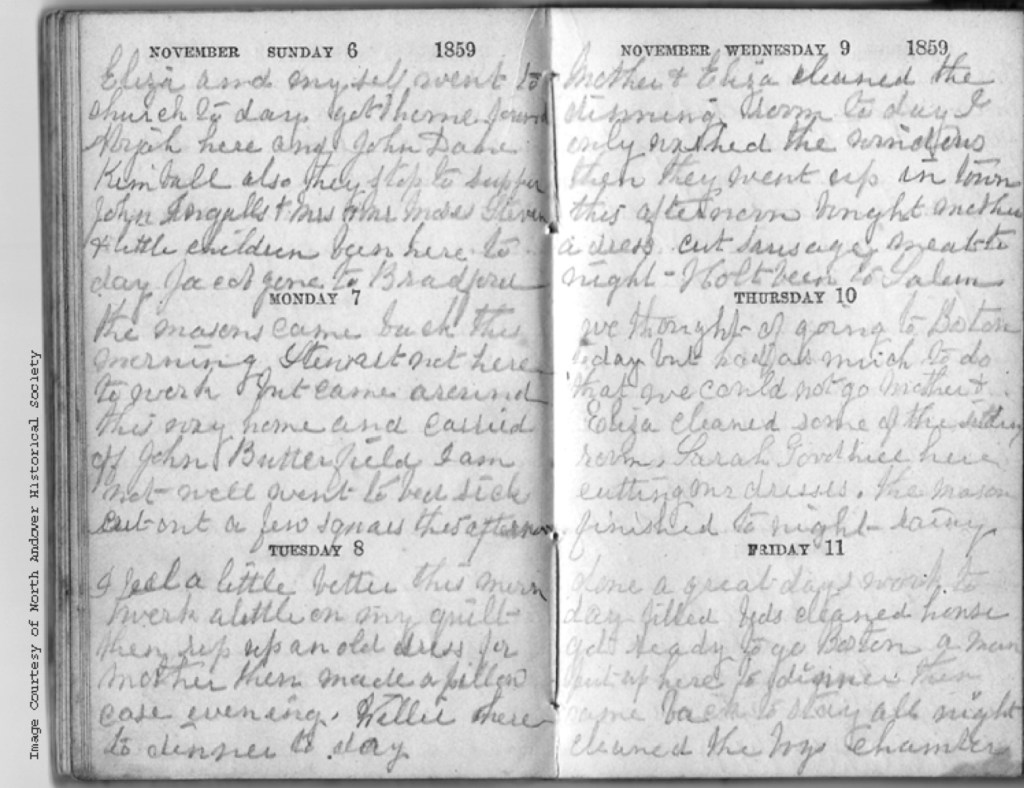 NOVEMBER SUNDAY 6 1859
Eliza and myself went to
church to day got home found
here and John Dane
Kimball also they stop to supper
John Ingalls & Mrs Moses Steven
& little children been here to
day Jacob gone to Bradford
MONDAY 7
the masons came back this
morning Stewart not here
to work but came around
this way home and carried
off John Butterfield I am
not well went to bed sick
cut out a few squars this afternon
TUESDAY 8
I feel a little better this morn
work a little on my quilt
then rip up an old dress for
Mother then made a pillow
case evening. Willie here
to dinner to day
NOVEMBER WEDNESDAY 9 1859
Mother & Eliza cleaned the
dinning room to day I
only washed the windows
then they went up in town
this afternoon bought mother
a dress cut sausage meat to
night - Holt been to Salem
THURSDAY 10
we thought of going to Boston
today but had so much to do
that we could not go Mother &
Eliza cleaned some of the sitting
room. Sarah Goodhue here
cutting our dresses. the mason
finished to night rainy
FRIDAY 11
done a great days work to
day filled beds cleaned house
got ready to go Boston a man
put up here to dinner then
came back to stay all night
cleaned the boys chamber
Image Courtesy of North Andover Historical Society